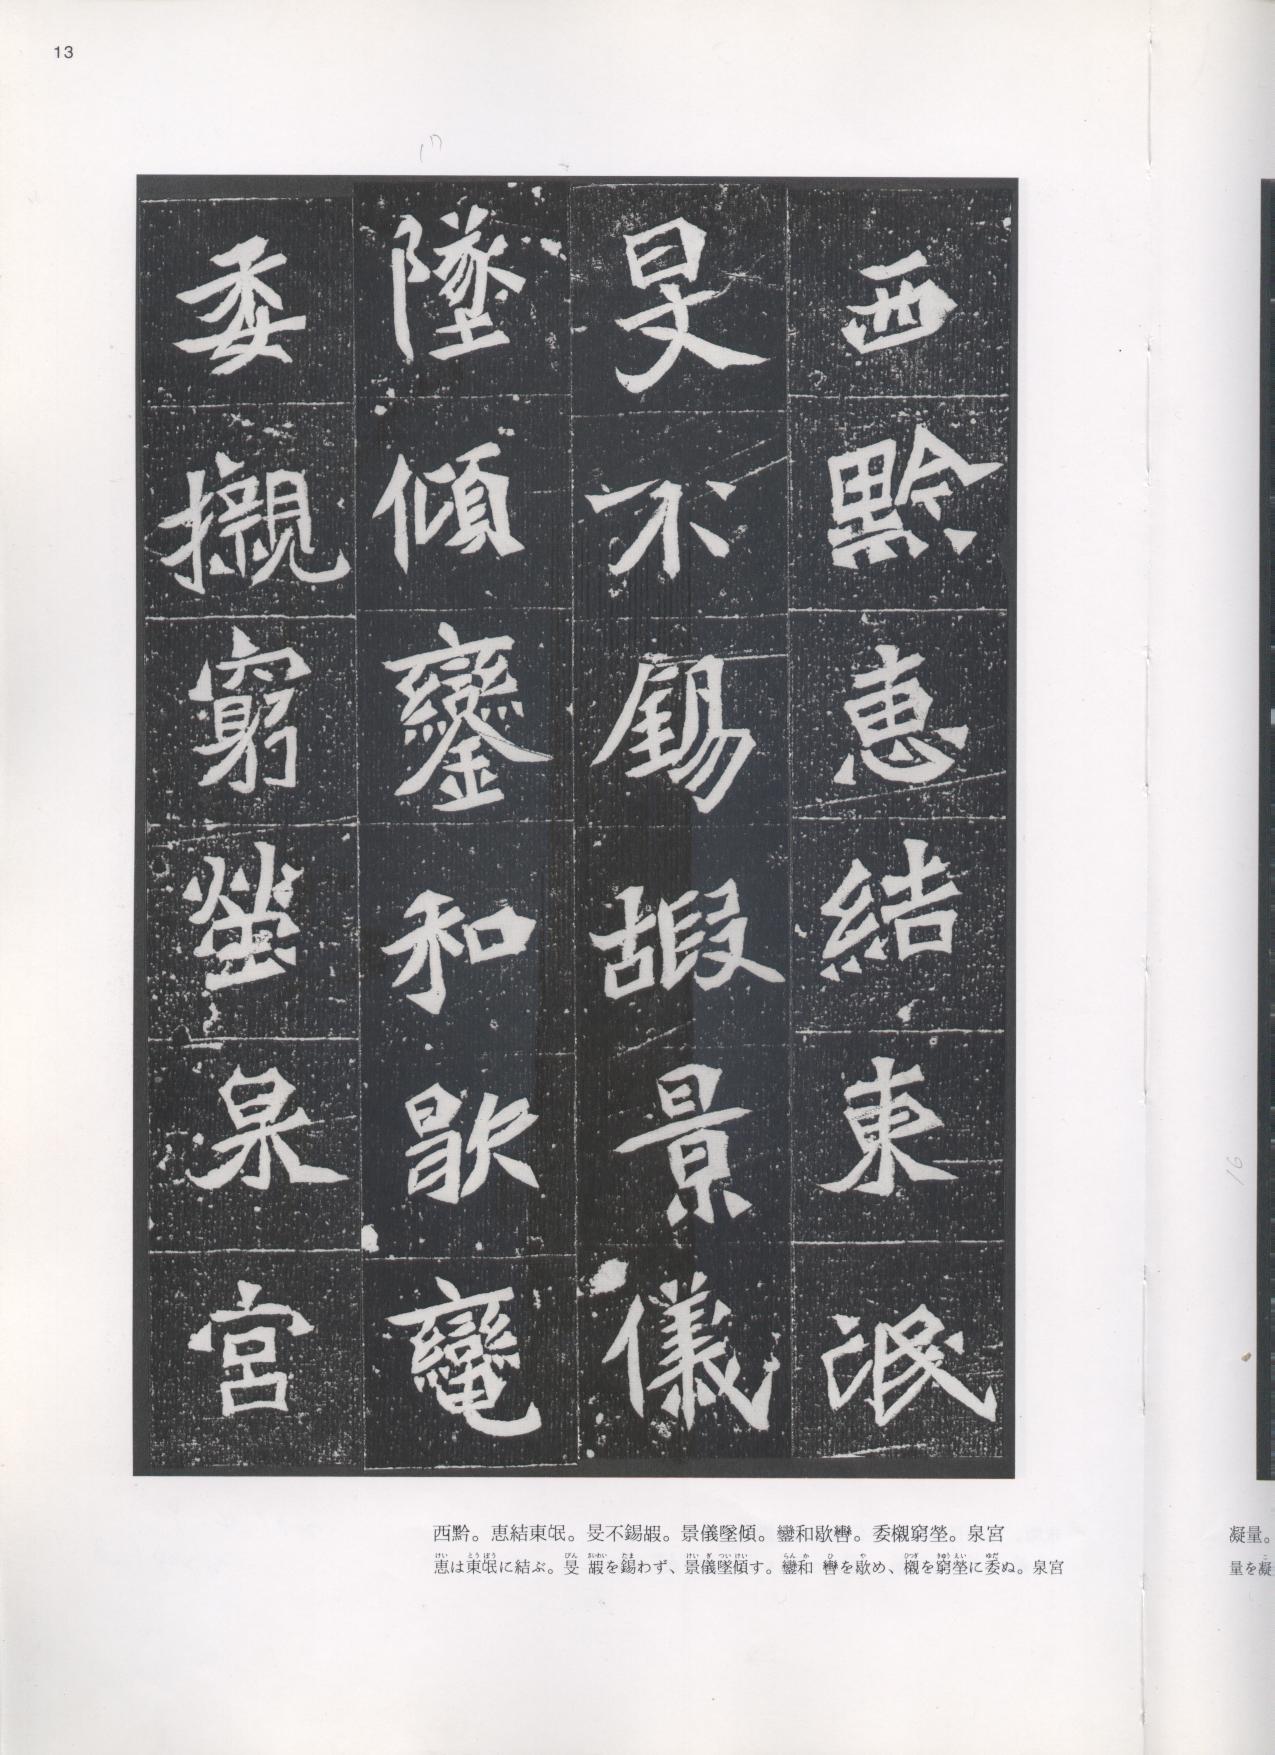 13
西黔惠結東泯
旻不錫嘏景儀
墜傾鑾和歇
委櫬窮塋泉宮
西黔。恵結東氓。旻不錫嘏。景儀墜傾。鑾和歇轡。委櫬窮塋。泉宮
恵は東氓に結ぶ。旻 嘏を錫わず、景儀墜傾す。鑾和 轡を歇め、櫬を窮塋に委ぬ。泉宮
16
凝量。
量を凝